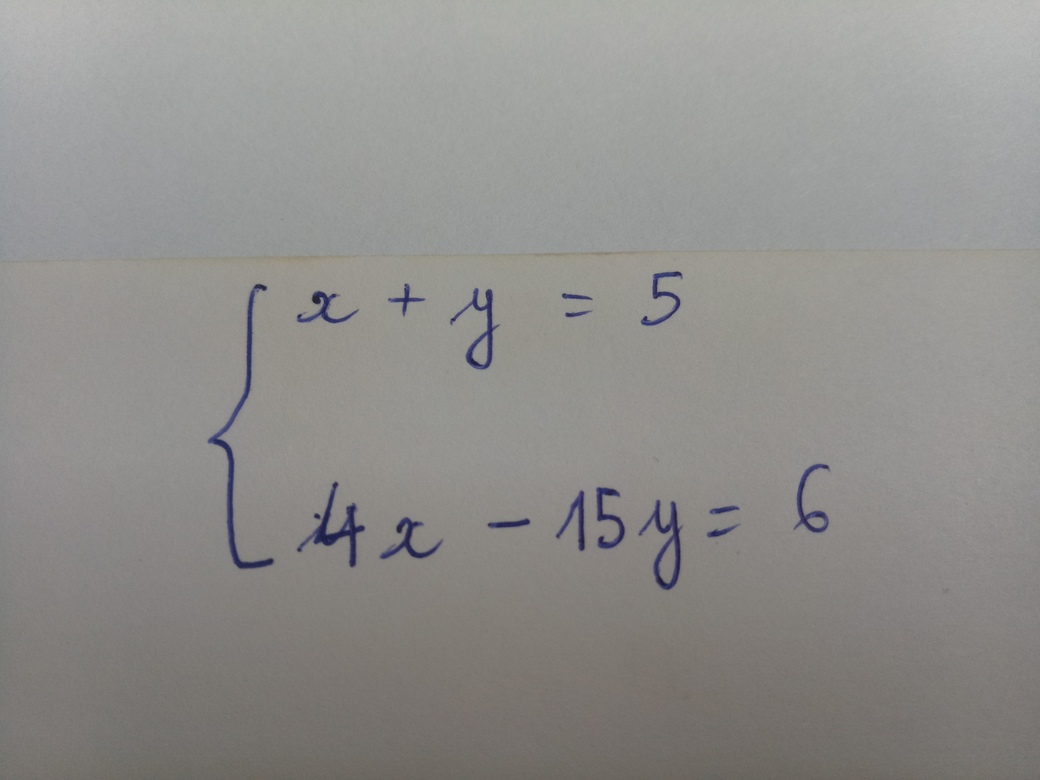 x + y = 5
4x - 15y = 6